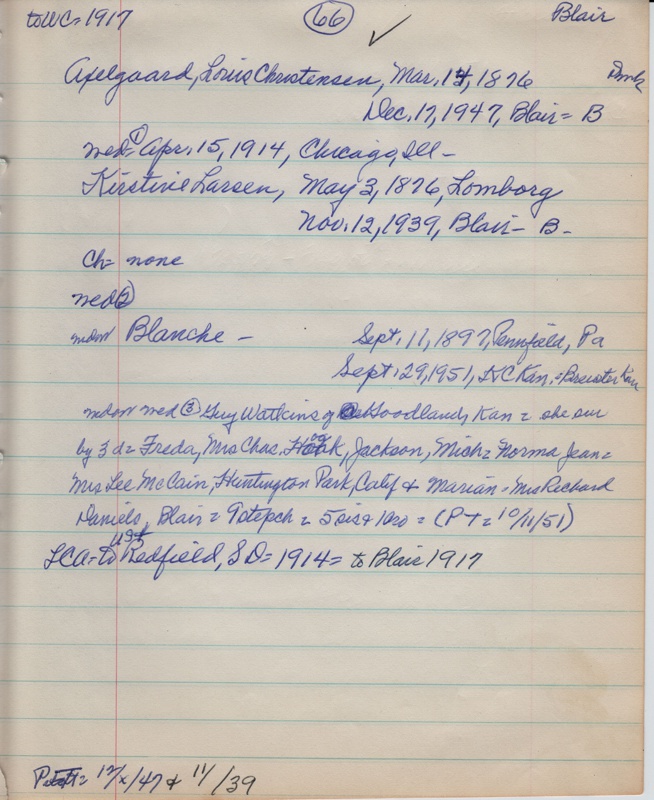 to WC = 1917 66 Blair
Axelgaard, Louis Christensen, Mar. 14, 1876 Dmk
Dec. 17, 1947, Blair = B
med ① = Apr. 15, 1914, Chicago, Ill -
Kirstine Larsen, May 3, 1876, Lomborg
Nov. 12, 1939, Blair - B -
Ch = none
med ②
widow Blanche - Sept. 11, 1897, Pennfield, Pa
Sept. 29, 1951, KC Kan, = Brewster Kan
widow med ③ Guy Watkins of Goodland, Kan = she sur
by 3 d = Freda, Mrs Chas. , Jackson, Mich = Norma Jean =
Mrs Lee McCain, Huntington Park, Calif & Marian = Mrs Richard
Daniels, Blair = 9 stepch = 5 sis & 1 bro = (PT = 10/11/51)
LCA = to US to Redfield, SD = 1914 = to Blair 1917
= 12/x/47 & 11/39